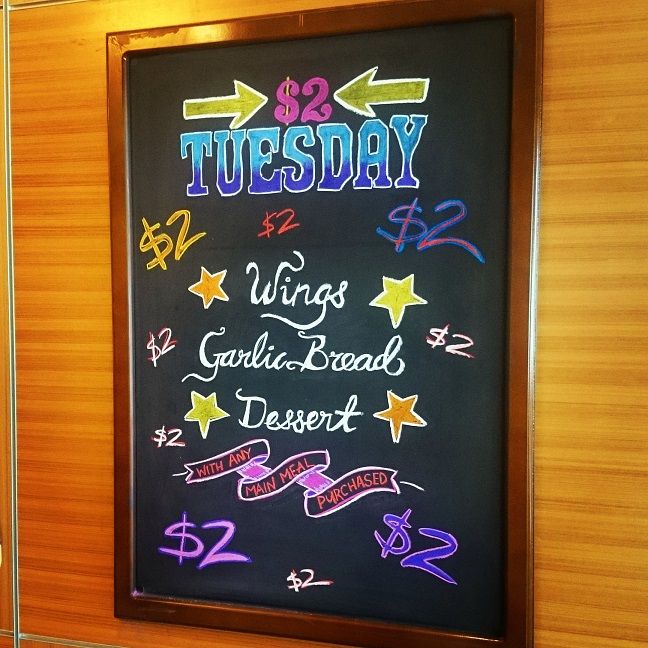 $2
TUESDAY
$2 $2 $2
Wings
$2 $2
Garlic Bread
Dessert
$2
WITH ANY MAIN MEAL PURCHASED
$2 $2
$2